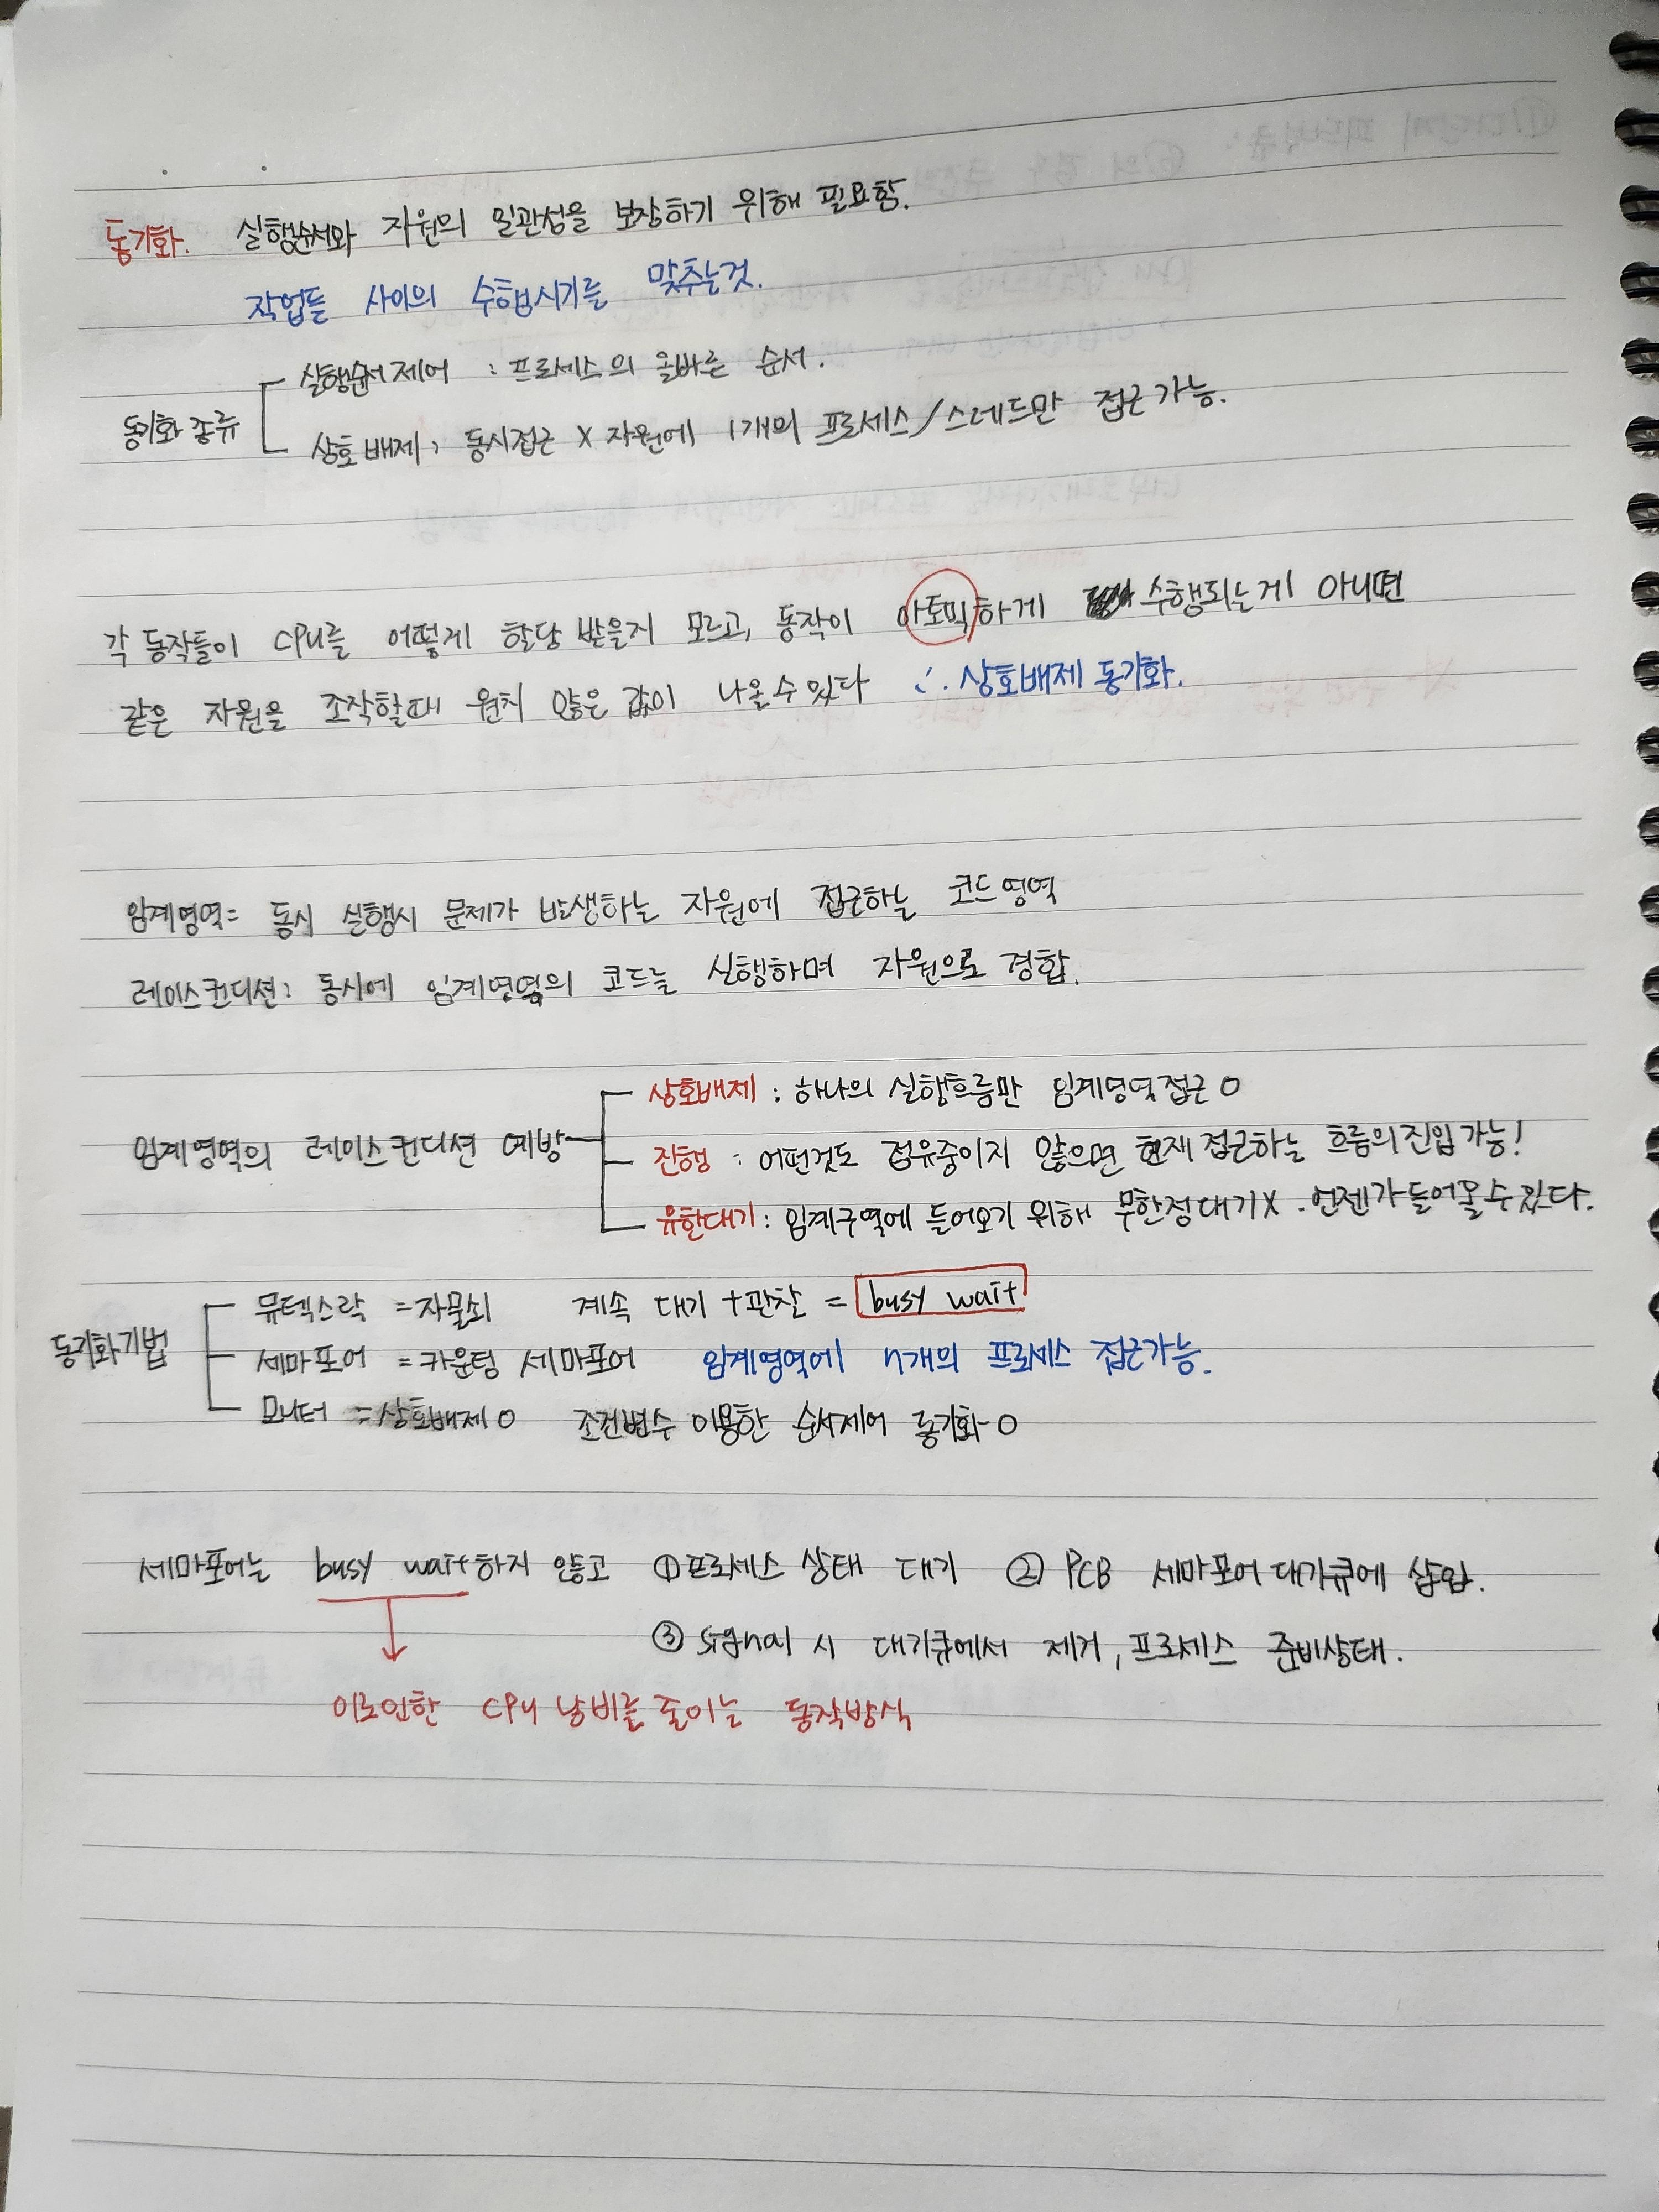 동기화. 실행순서와 자원의 일관성을 보장하기 위해 필요함.
작업들 사이의 수행시기를 맞추는것.
동기화 종류
실행순서 제어 : 프로세스의 올바른 순서.
상호배제 : 동시접근 X 자원에 1개의 프로세스/스레드만 접근가능.
각 동작들이 CPU를 어떻게 할당 받을지 모르고, 동작이 아토믹하게 수행되는게 아니면
같은 자원을 조작할때 원치 않은 값이 나올수 있다 ∴ 상호배제 동기화.
임계영역= 동시 실행시 문제가 발생하는 자원에 접근하는 코드영역
레이스컨디션: 동시에 임계영역의 코드를 실행하며 자원으로 경합.
임계영역의 레이스컨디션 예방
상호배제 : 하나의 실행흐름만 임계영역접근 O
진행 : 어떤것도 점유중이지 않으면 현재 접근하는 흐름의 진입가능!
유한대기 : 임계구역에 들어오기 위해 무한정대기X. 언젠가들어올수있다.
동기화기법
뮤텍스락 =자물쇠 계속 대기 +관찰 = busy wait
세마포어 =카운팅 세마포어 임계영역에 n개의 프로세스 접근가능.
모니터 =상호배제O 조건변수 이용한 순서제어 동기화 O
세마포어는 busy wait하지 않고 ①프로세스 상태 대기 ② PCB 세마포어 대기큐에 삽입.
③ signal 시 대기큐에서 제거, 프로세스 준비상태.
이로인한 CPU 낭비를 줄이는 동작방식